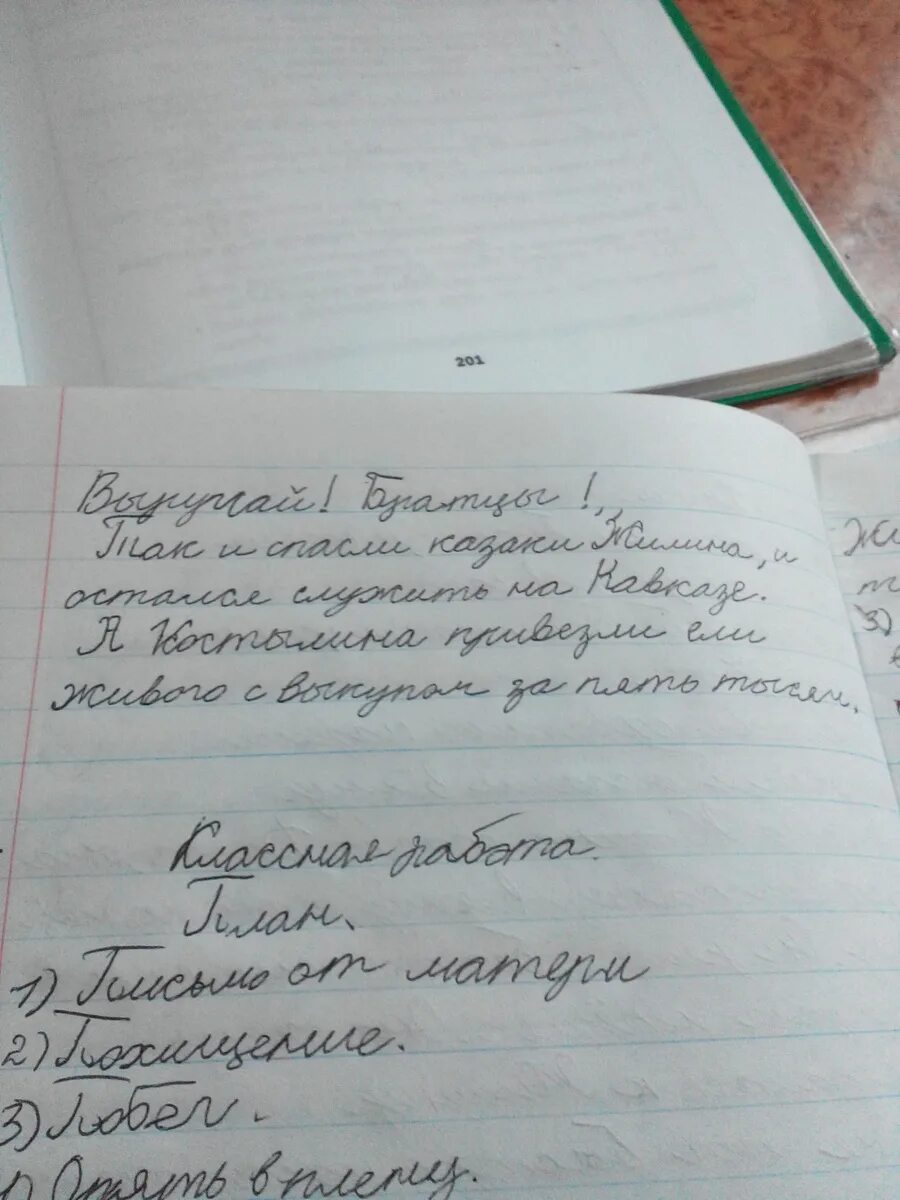 201
Выручай! Братцы!,
Так и спасли казаки Жилина, и
остался служить на Кавказе.
А Костылина привезли ели
живого с выкупом за пять тысяч.
Классная работа.
План.
1) Письмо от матери
2) Похищение.
3) Побег.
Опять в плену.
Жи
3)